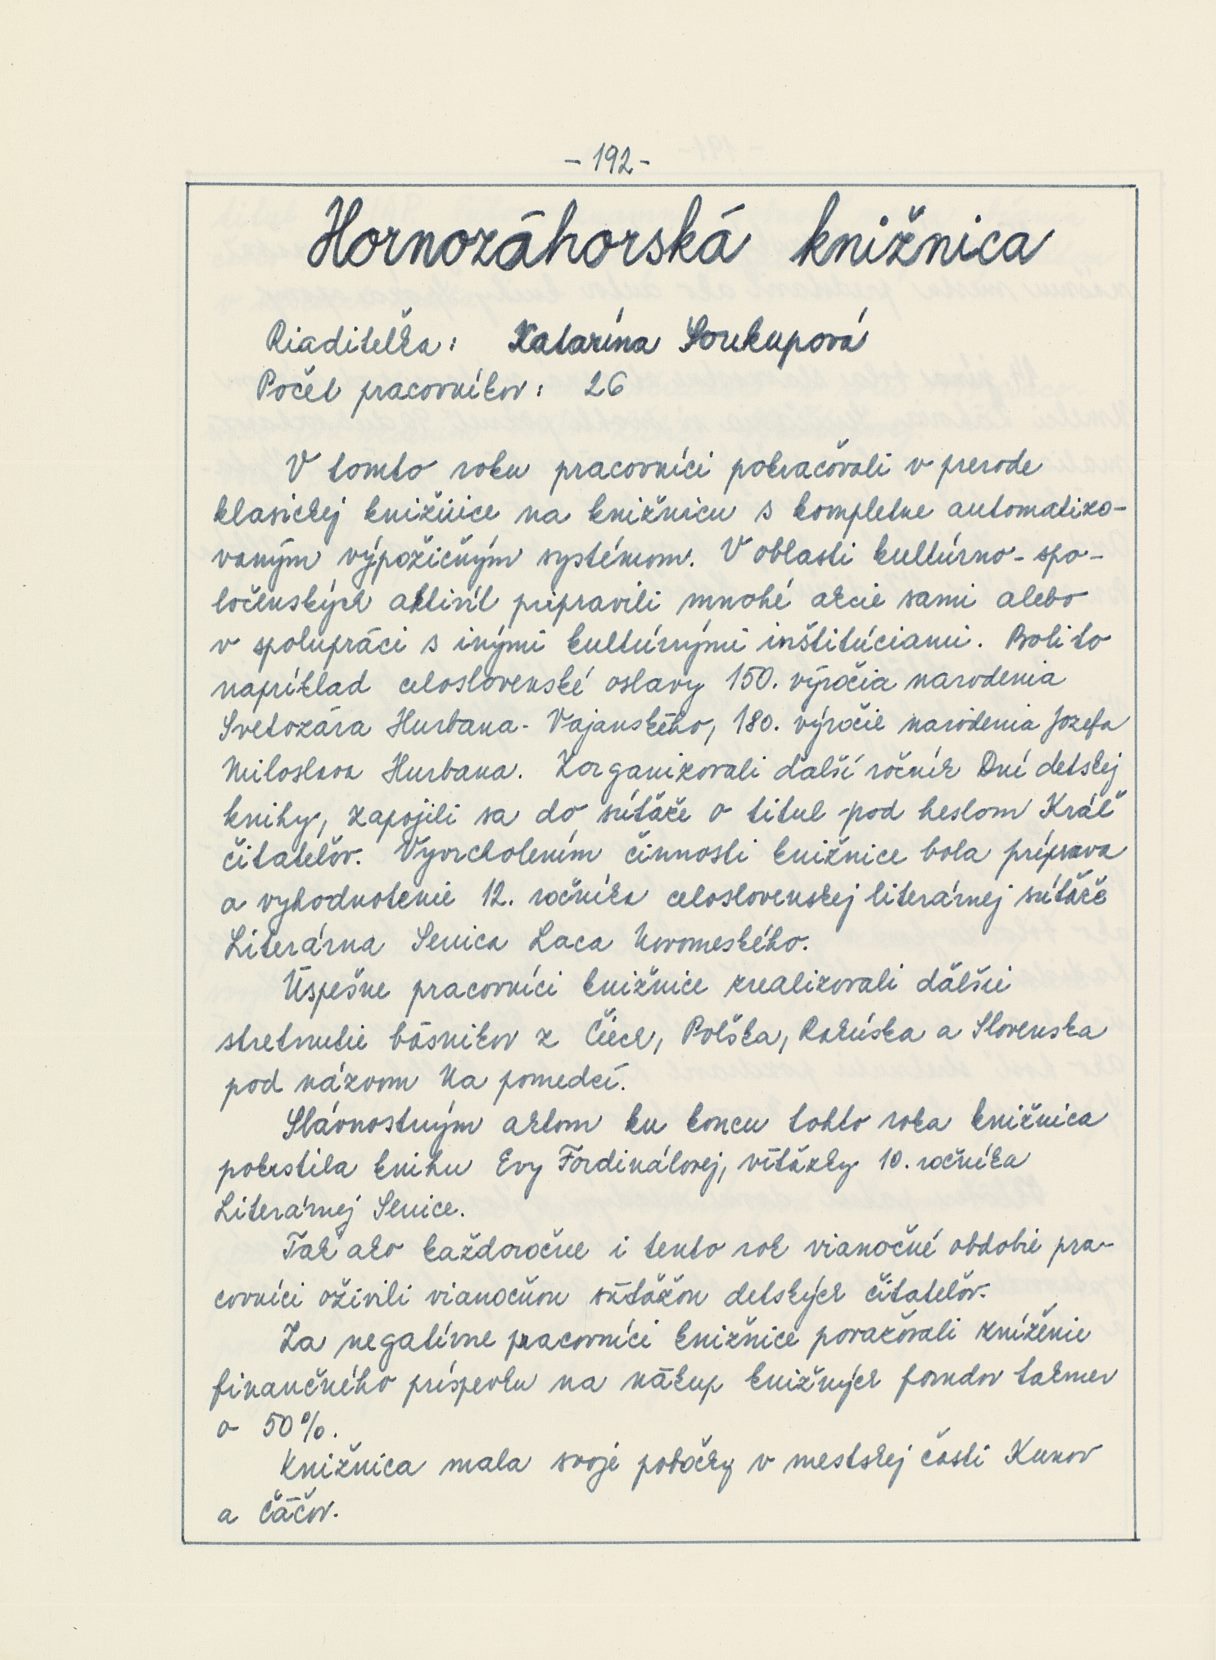 - 192 -
Hornozáhorská knižnica
Riaditeľka: Katarína Soukupová
Počet pracovníkov: 26
V tomto roku pracovníci pokračovali v prerode
klasickej knižnice na knižnicu s kompletne automatizo-
vaným výpožičným systémom. V oblasti kultúrno-spo-
ločenských aktivít pripravili mnohé akcie sami alebo
v spolupráci s inými kultúrnými inštitúciami. Boli to
napríklad celoslovenské oslavy 150. výročia narodenia
Svetozára Hurbana-Vajanského, 180. výročie narodenia Jozefa
Miloslava Hurbana. Zorganizovali ďalší ročník Dní detskej
knihy, zapojili sa do súťaže o titul pod heslom Kráľ
čitateľov. Vyvrcholením činnosti knižnice bola príprava
a vyhodnotenie 12. ročníka celoslovenskej literárnej súťaže
Literárna Senica Laca Novomeského.
Úspešne pracovníci knižnice zrealizovali ďalšie
stretnutie básnikov z Čiech, Poľska, Rakúska a Slovenska
pod názvom Na pomedzí.
Slávnostným aktom ku koncu tohto roka knižnica
pokrstila knihu Evy Fordinálovej, víťazky 10. ročníka
Literárnej Senice.
Tak ako každoročne i tento rok vianočné obdobie pra-
covníci oživili vianočnou súťažou detských čitateľov.
Za negatívne pracovníci knižnice považovali zníženie
finančného príspevku na nákup knižných fondov takmer
o 50%.
Knižnica mala svoje pobočky v mestskej časti Kunov
a Čáčov.